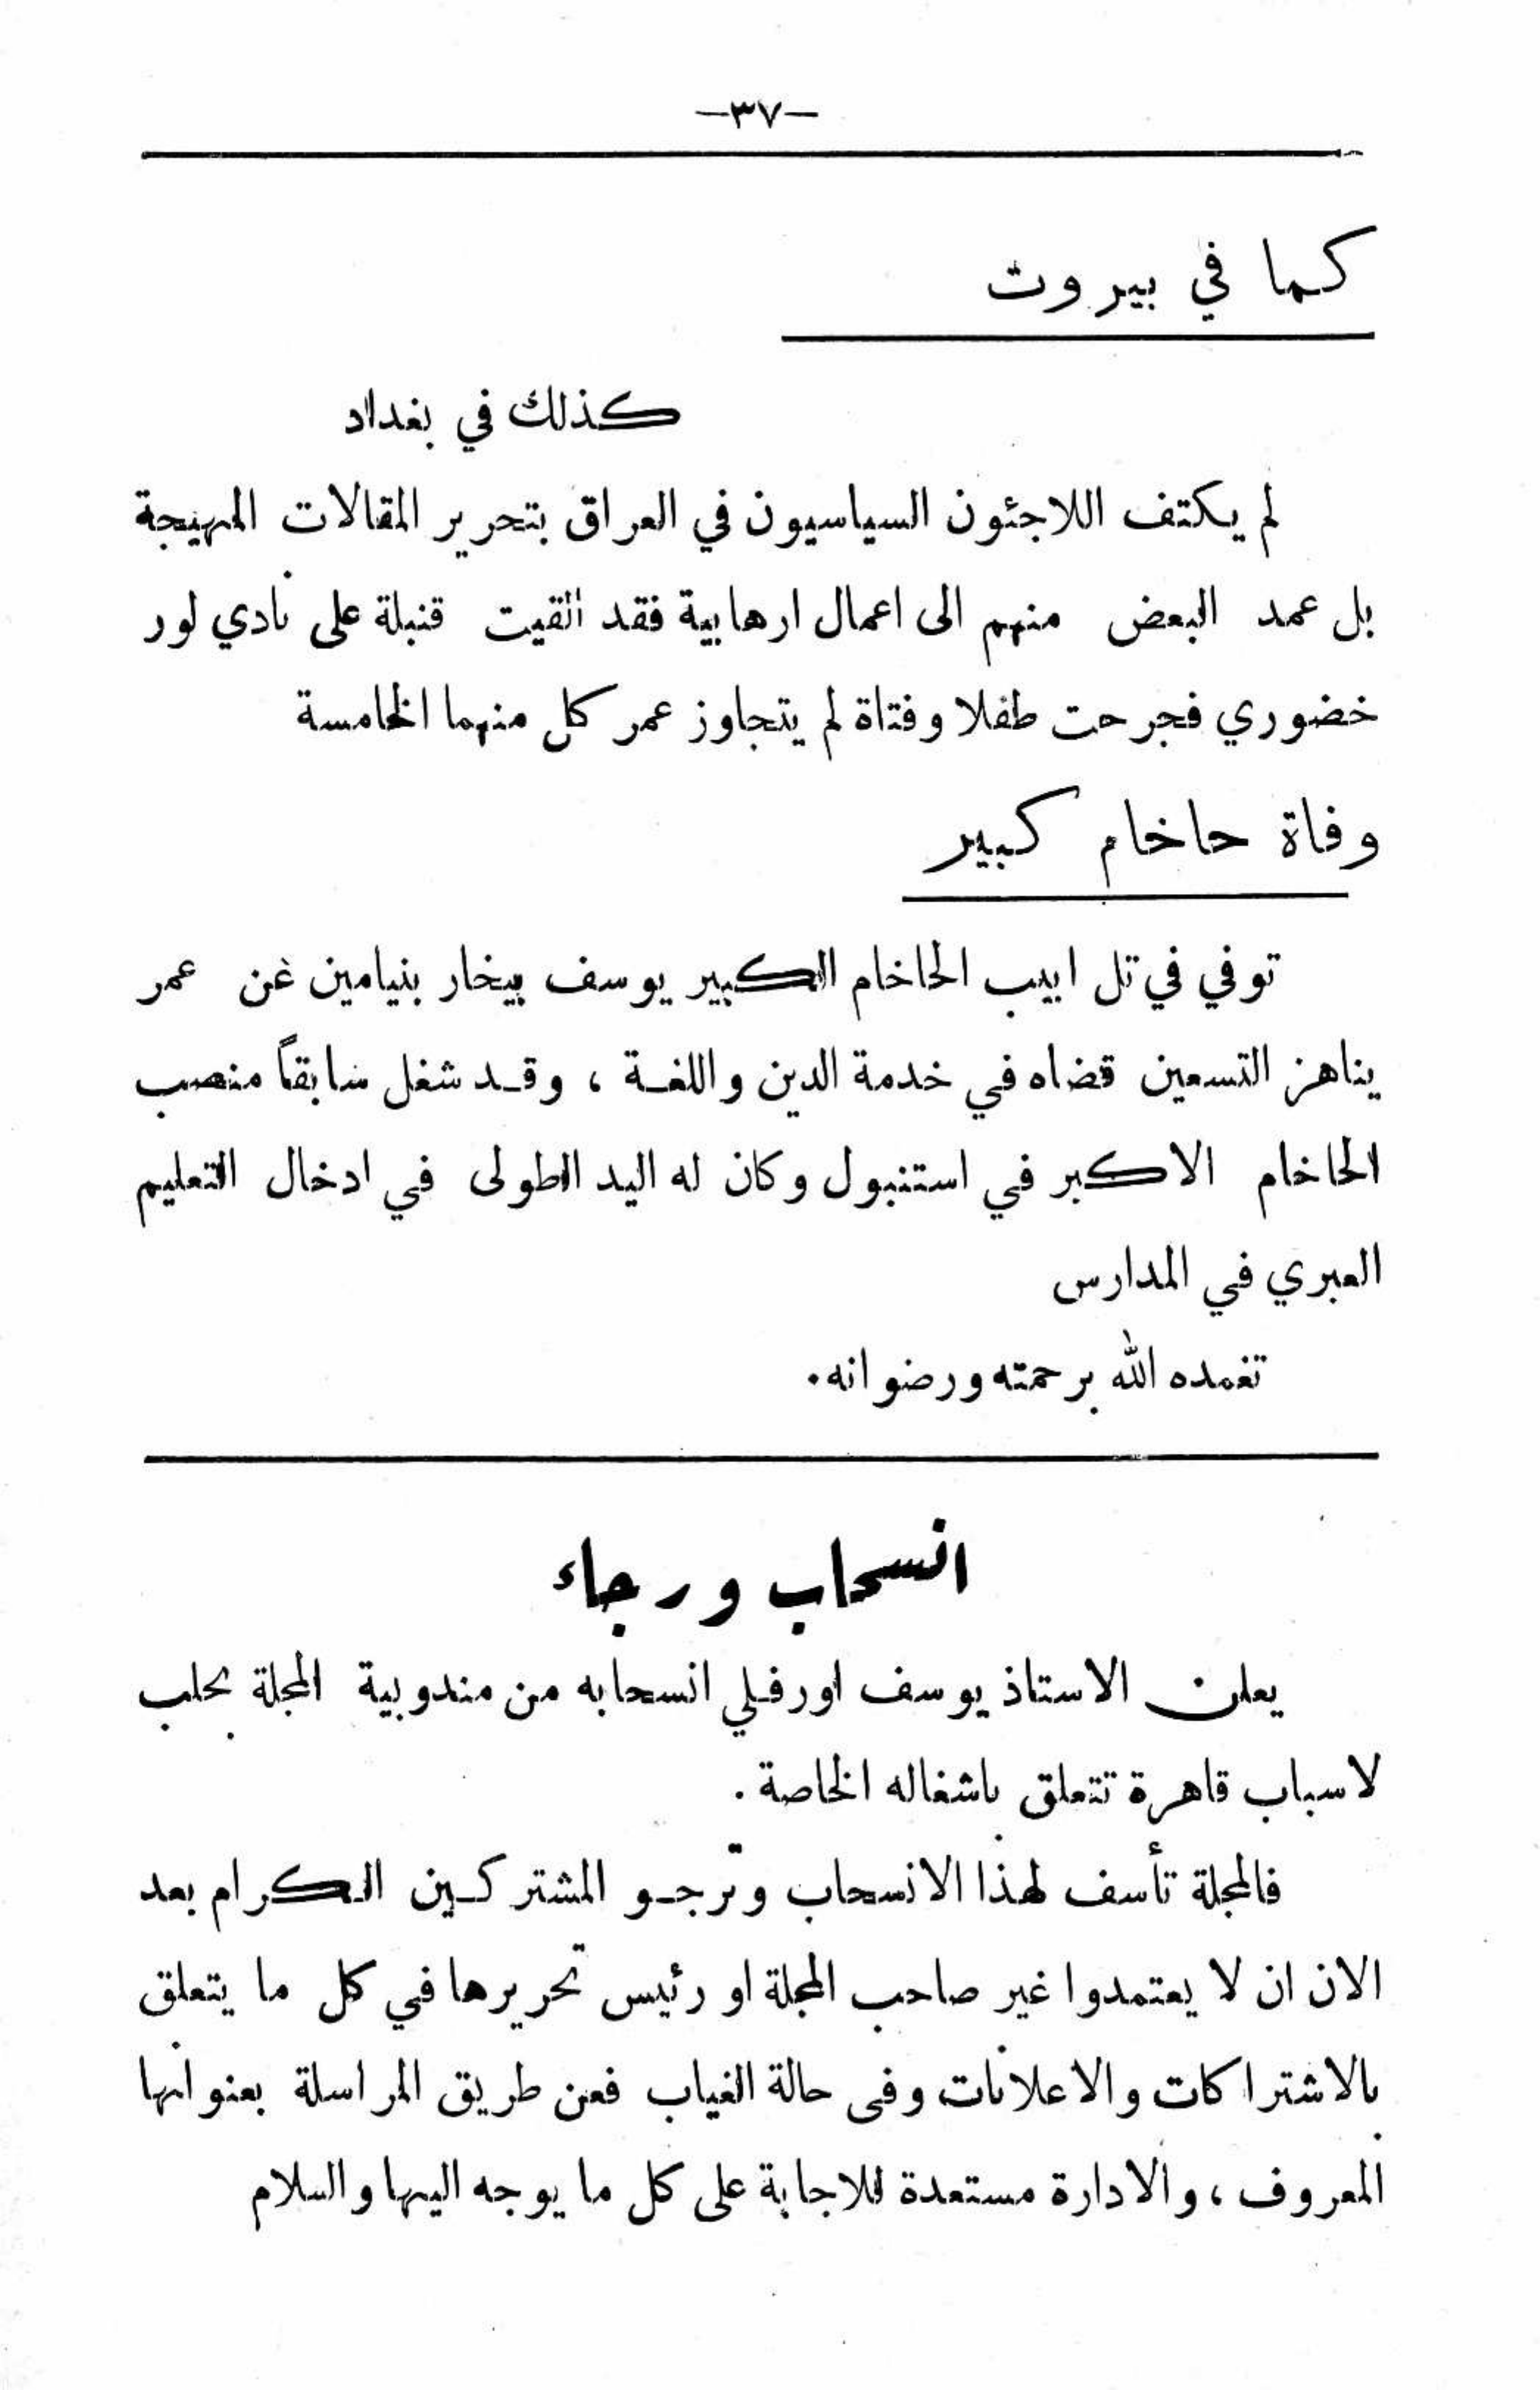 —٣٧—
كما في بيروت
كذلك في بغداد
لم يكتف اللاجئون السياسيون في العراق بتحرير المقالات المهيجة
بل عمد البعض منهم الى اعمال ارهابية فقد القيت قنبلة على نادي لور
خضوري فجرحت طفلا وفتاة لم يتجاوز عمر كل منهما الخامسة
وفاة حاخام كبير
توفي في تل ابيب الحاخام الكبير يوسف بيخار بنيامين عن عمر
يناهز التسعين قضاه في خدمة الدين واللغة ، وقد شغل سابقاً منصب
الحاخام الاكبر في استنبول وكان له اليد الطولى في ادخال التعليم
العبري في المدارس
تغمده الله برحمته ورضوانه.
انسحاب ورجاء
يعلن الاستاذ يوسف اورفلي انسحابه من مندوبية المجلة بحلب
لاسباب قاهرة تتعلق باشغاله الخاصة .
فالمجلة تأسف لهذا الانسحاب وترجو المشتركين الكرام بعد
الان ان لا يعتمدوا غير صاحب المجلة او رئيس تحريرها في كل ما يتعلق
بالاشتراكات والاعلانات وفى حالة الغياب فعن طريق المراسلة بعنوانها
المعروف ، والادارة مستعدة للاجابة على كل ما يوجه اليها والسلام